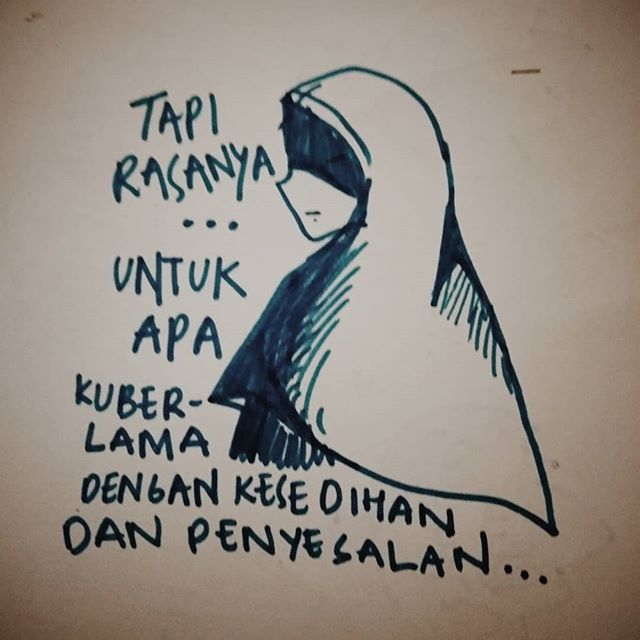 TAPI
RASANYA
...
UNTUK
APA
KUBER-
LAMA
DENGAN KESEDIHAN
DAN PENYESALAN...